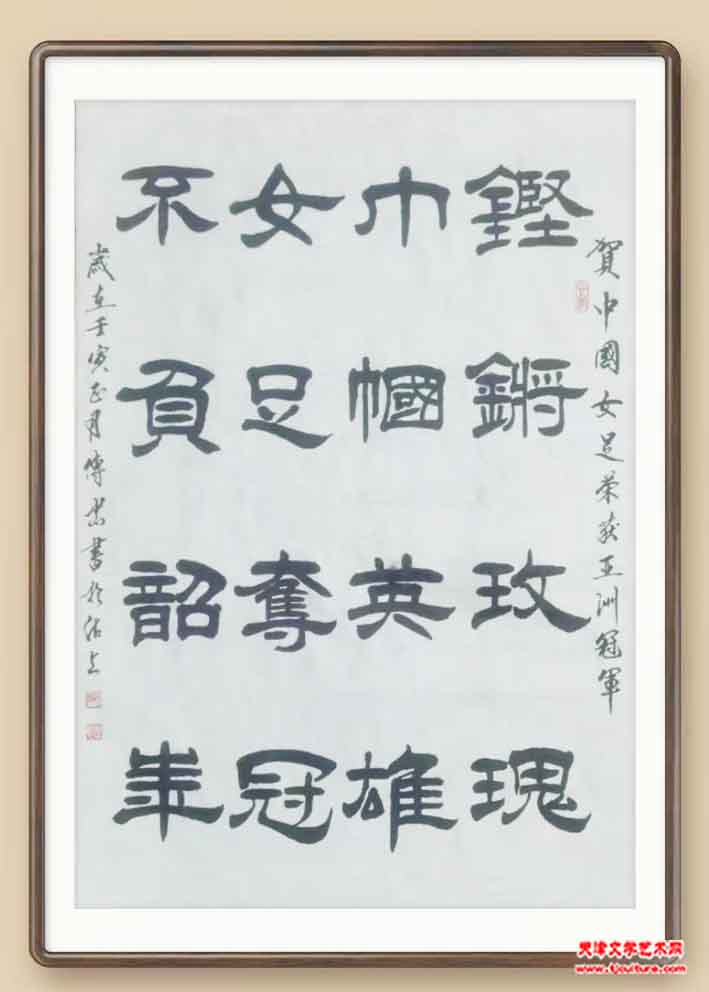 賀中國女足荣获亚洲冠軍
鏗鏘玫瑰
巾幗英雄
女足奪冠
不負韶華
歲在壬寅正月傅书於沽上
天津文学艺术网
www.tjculture.com